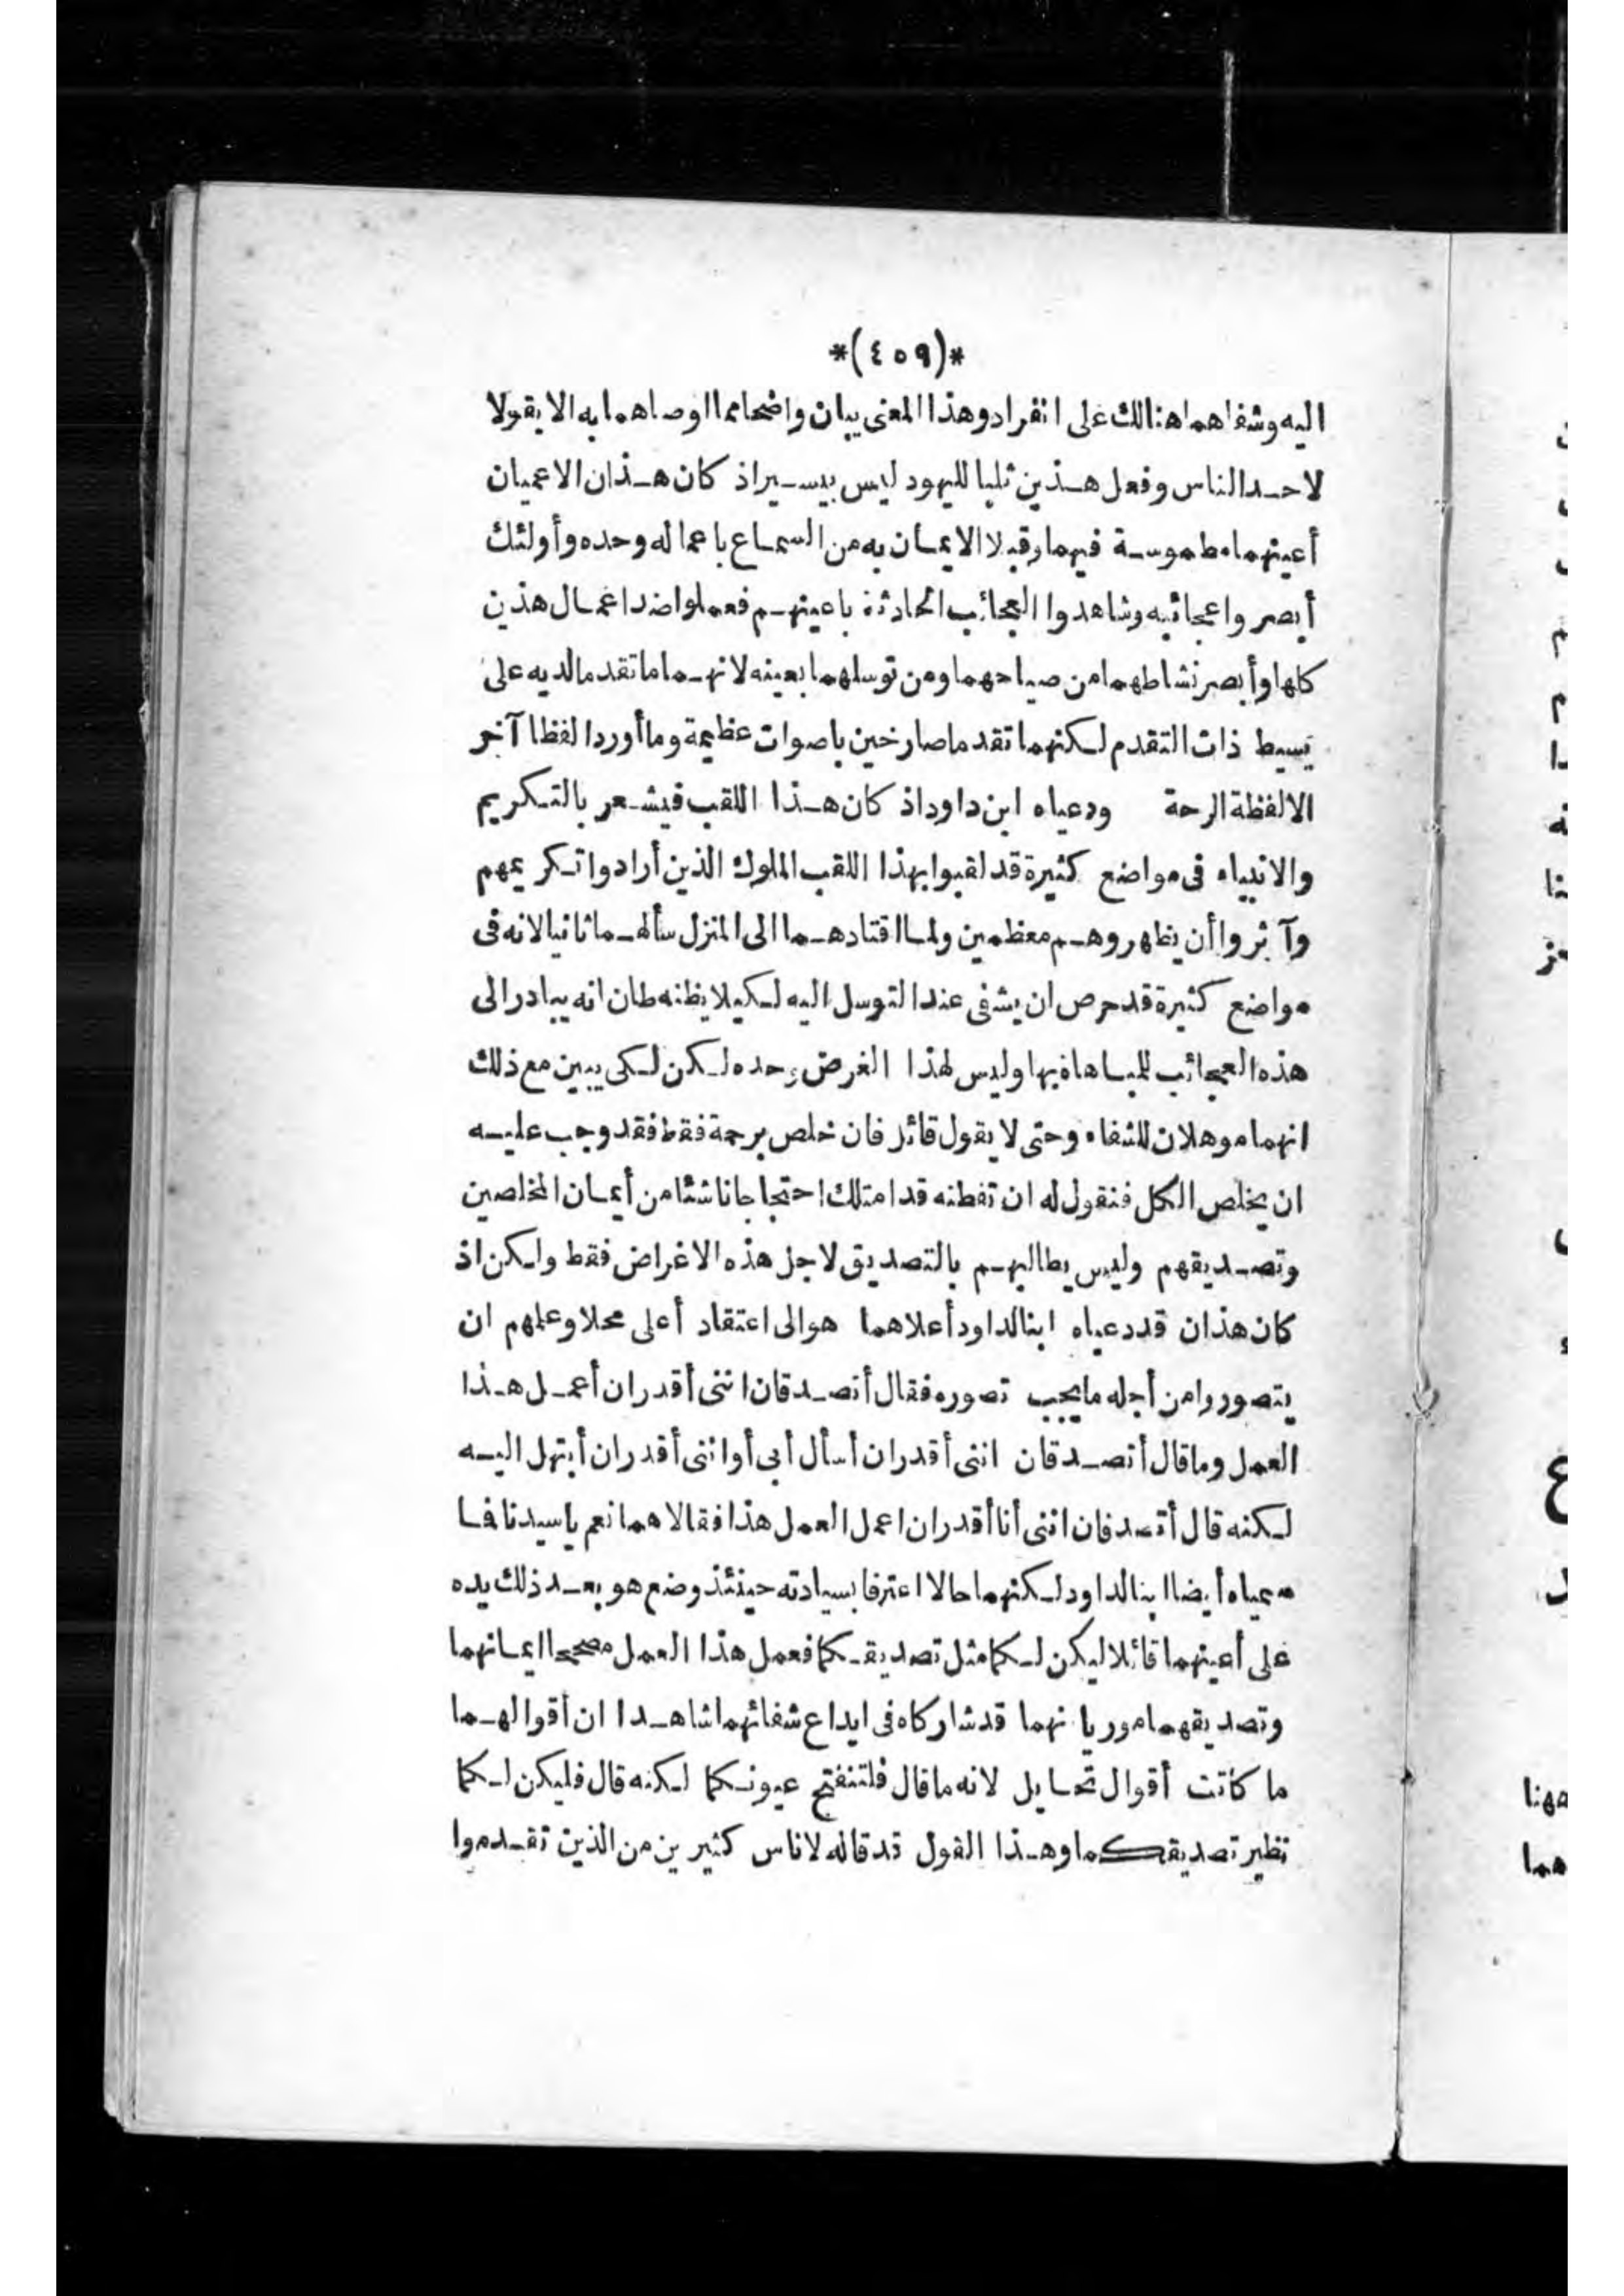 *(٤٥٩)*
اليه وشفاهما هنالك على انفراد وهذا المعنى يبان واضحا مما اوصاهما به الا يقولا
لاحد الناس وفعل هذين ثلبا لليهود ليس بيسير اذ كان هذان الاعميان
أعينهما مطموسة فيهما وقبلا الايمان به من السماع باعماله وحده وأولئك
أبصروا عجائبه وشاهدوا العجائب الحادثة باعينهم فعملوا ضد اعمال هذين
كلها وأبصر نشاطهما من صياحهما ومن توسلهما بعينه لانهما ما تقدما لديه على
بسيط ذات التقدم لكنهما تقدما صارخين باصوات عظيمة وما أوردا لفظا آخر
الا لفظة الرحة ودعياه ابن داود اذ كان هذا اللقب فيشعر بالتكريم
والانبياء فى مواضع كثيرة قد لقبوا بهذا اللقب الملوك الذين أرادوا تكريمهم
وآثروا أن يظهروهم معظمين ولما اقتادهما الى المنزل سألهما ثانيا لانه فى
مواضع كثيرة قد حرص ان يشفى عند التوسل اليه لكيلا يظنه ظان انه يبادر الى
هذه العجائب للمباهاة بها وليس لهذا الغرض وحده لكن لكى يبين مع ذلك
انهما موهلان للشفاء وحتى لا يقول قائل فان خلص برحمة فقط فقد وجب عليه
ان يخلص الكل فنقول له ان تفطنه قد امتلك احتجاجا ناشئا من أيمان المخلصين
وتصديقهم وليس يطالبهم بالتصديق لاجل هذه الاغراض فقط ولكن اذ
كان هذان قد دعياه ابنا لداود أعلاهما هو الى اعتقاد أعلى محلا وعلمهم ان
يتصوروا من أجله ما يجب تصوره فقال أتصدقان اننى أقدر ان أعمل هذا
العمل وما قال أتصدقان اننى أقدر ان أسأل أبى أو اننى أقدر ان أبتهل اليه
لكنه قال أتصدقان اننى أنا أقدر ان اعمل العمل هذا فقالا هما نعم ياسيدنا فما
سمياه أيضا ابنا لداود لكنهما حالا اعترفا بسيادته حينئذ وضع هو بعد ذلك يده
على أعينهما قائلا ليكن لكما مثل تصديقكما فعمل هذا العمل مصححا ايمانهما
وتصديقهما موريا نهما قد شاركاه فى ابداع شفائهما شاهدا ان أقوالهما
ما كانت أقوال تحايل لانه ما قال فلتنفتح عيونكما لكنه قال فليكن لكما
نظير تصديقكما وهذا القول قد قاله لاناس كثيرين من الذين تقدموا